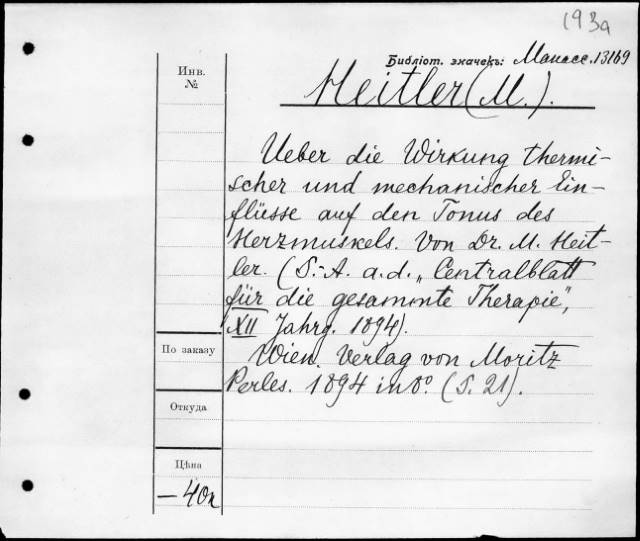 193a
Библіот. значекъ: Манасс. 13169
Инв.
№
Heitler (M.).
Ueber die Wirkung thermi-
scher und mechanischer Ein-
flüsse auf den Tonus des
Herzmuskels. Von Dr. M. Heit-
ler. (S.-A. a. d. „Centralblatt
für die gesammte Therapie",
XII Jahrg. 1894).
Wien. Verlag von Moritz
Perles. 1894 in 8°. (S. 21).
По заказу
Откуда
Цѣна
— 40к